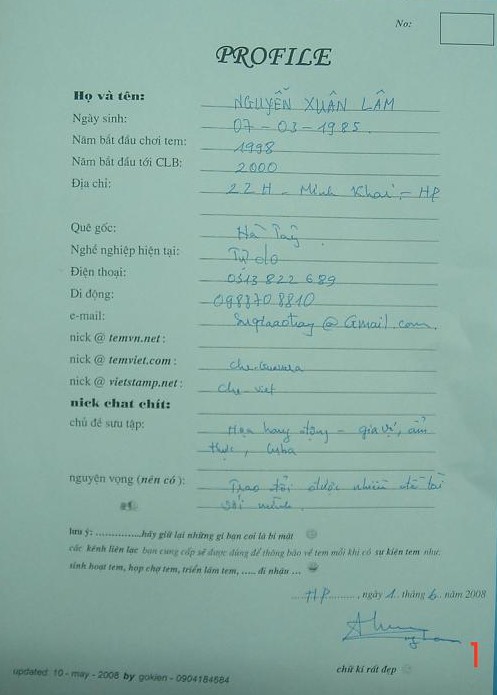 No:
PROFILE
Họ và tên: NGUYỄN XUÂN LÂM
Ngày sinh: 07-03-1985.
Năm bắt đầu chơi tem: 1998
Năm bắt đầu tới CLB: 2000
Địa chỉ: 22H - Minh Khai - HP
Quê gốc: Hà Tây
Nghề nghiệp hiện tại: Tự do
Điện thoại: 0313 822 689
Di động: 0988708810
e-mail: @ Gmail.com.
nick @ temvn.net :
nick @ temviet.com : che.Guevara
nick @ vietstamp.net : che_viet
nick chat chít:
chủ đề sưu tập: Hoa hang động - gia vị, ẩm
thực, Cuba
nguyện vọng (nếu có): Trao đổi được nhiều đề tài
với mình.
lưu ý: ...............hãy giữ lại những gì bạn coi là bí mật
các kênh liên lạc bạn cung cấp sẽ được dùng để thông báo về tem mỗi khi có sự kiện tem như:
sinh hoạt tem, họp chợ tem, triển lãm tem, ..... đi nhậu ...
....HP........., ngày 1.. tháng 6.. năm 2008
1
chữ kí rất đẹp
updated: 10 - may - 2008 by gokien - 0904184684